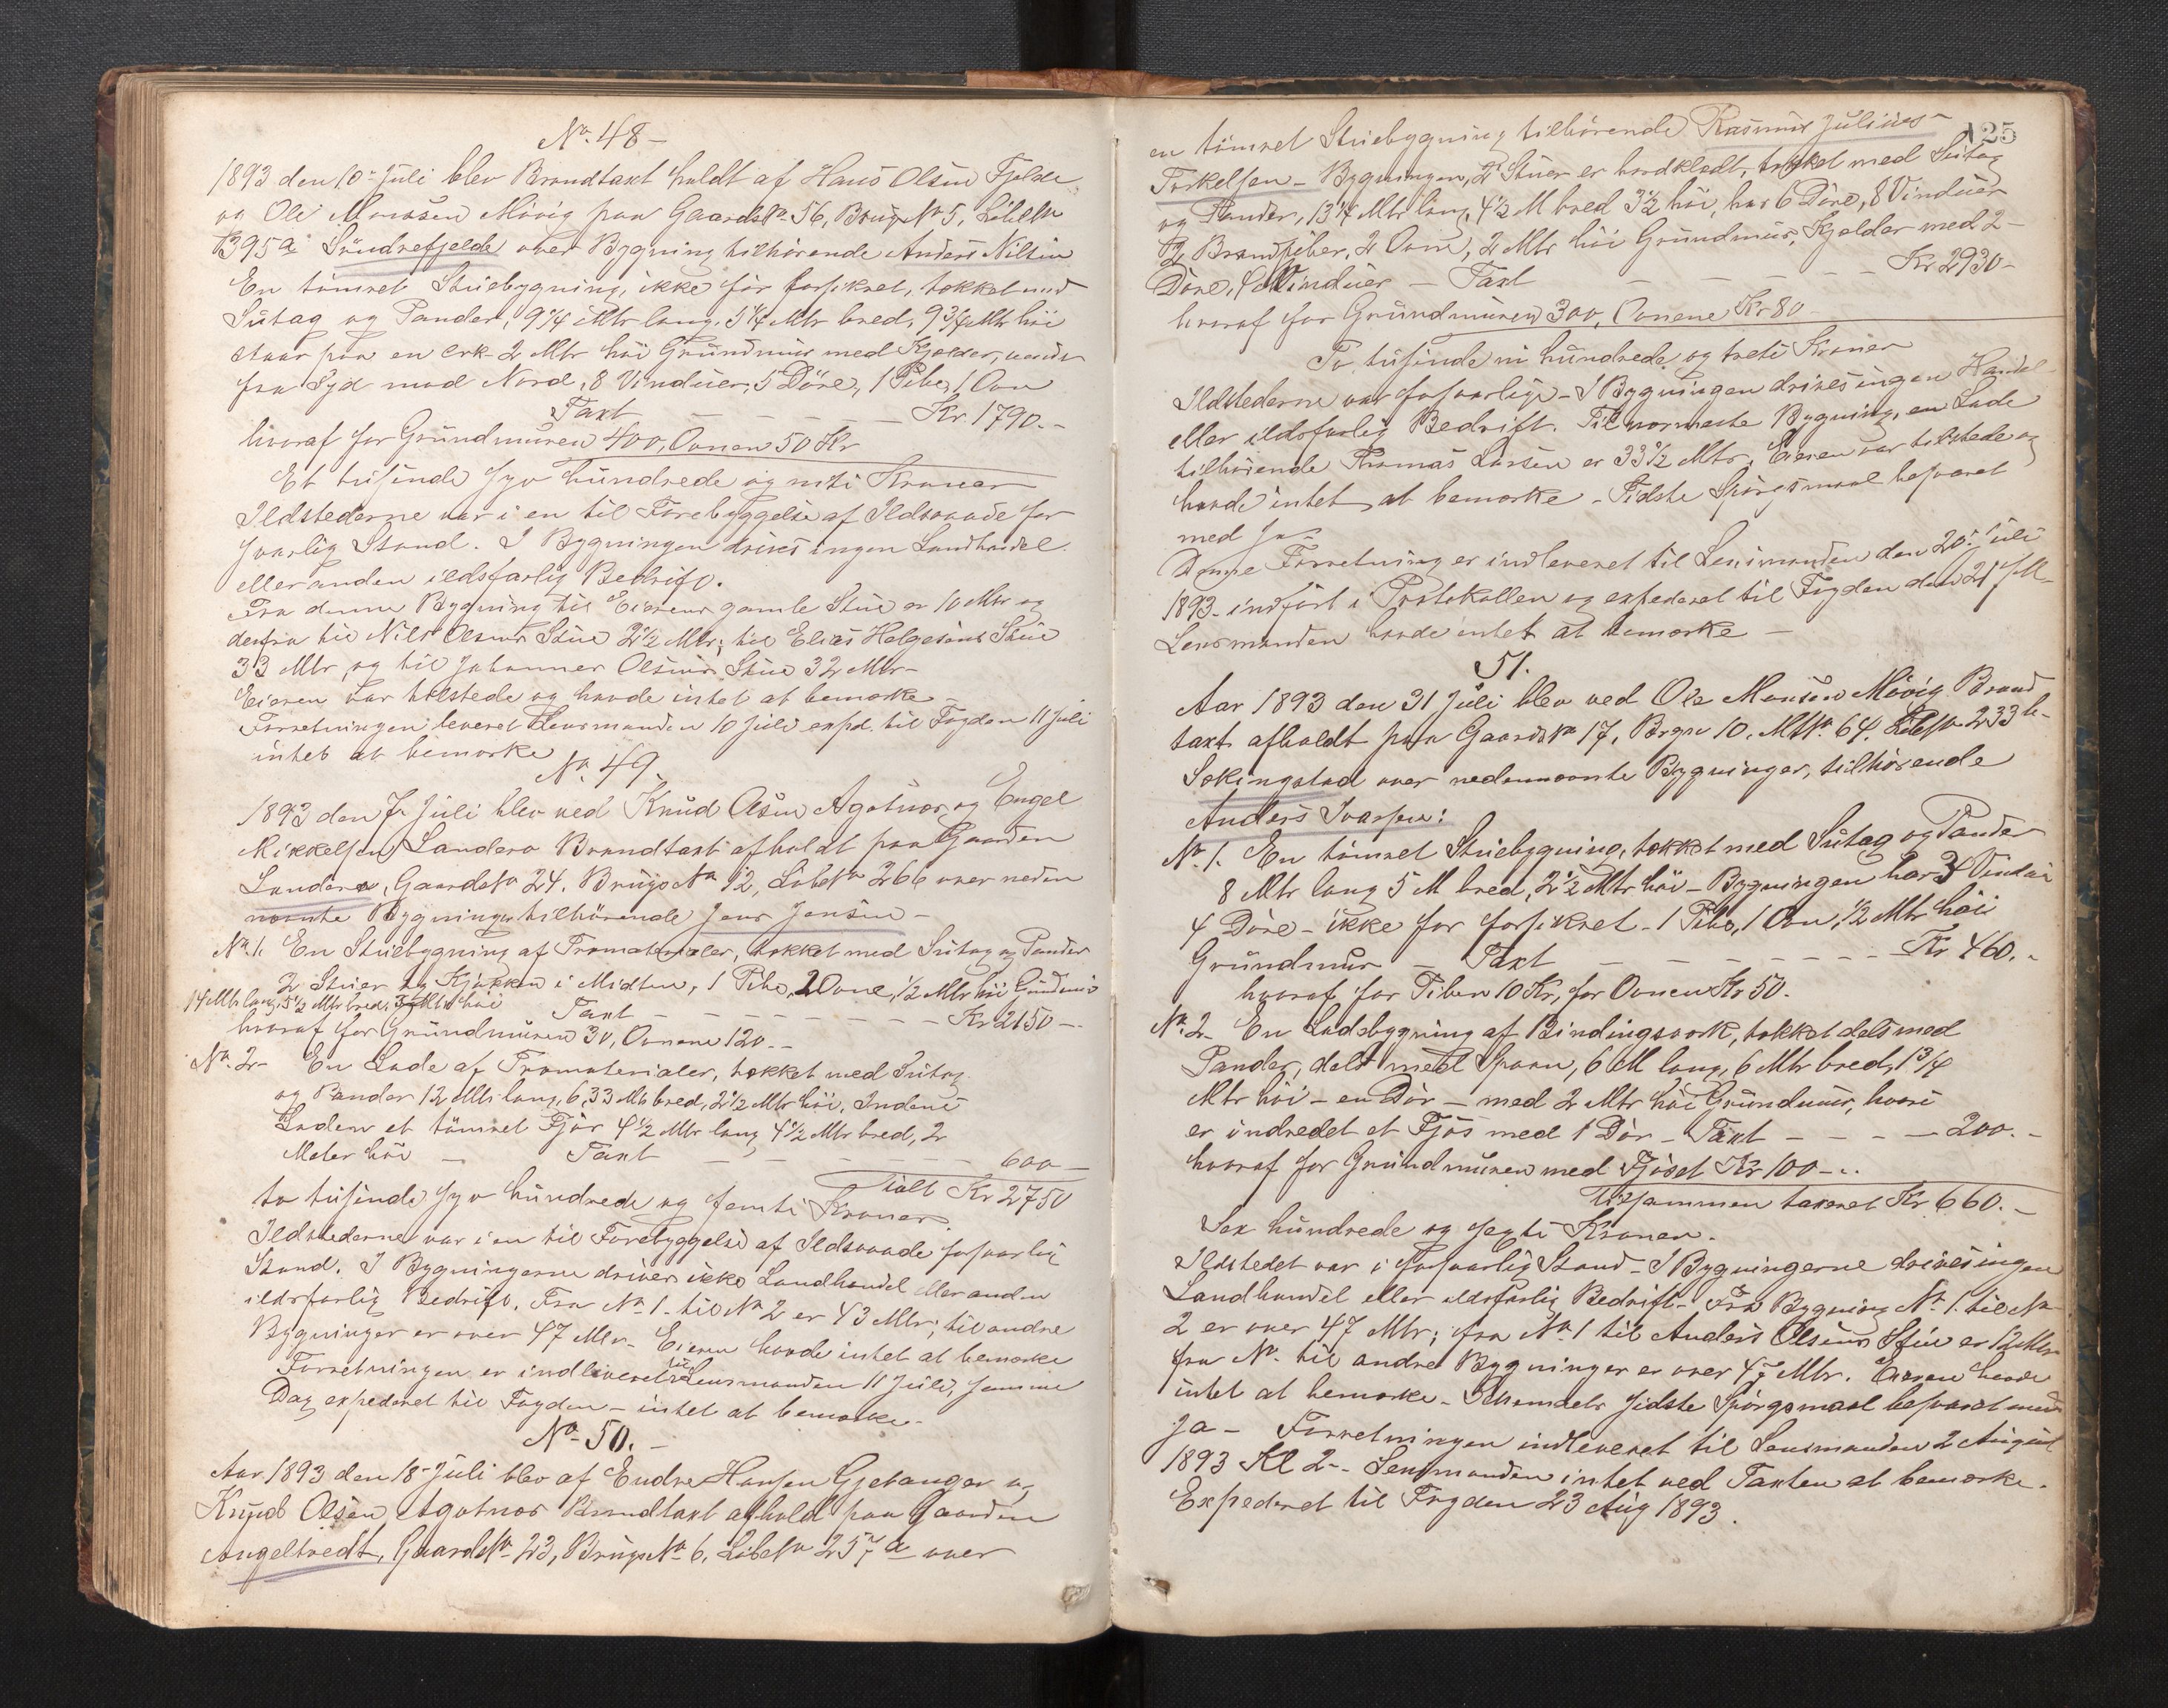 No. 48 -
1893 den 10de Juli blev Brandtaxt holdt af Hans Olsen Fjelde
og Ole Monsen Mövig paa Gaards No. 56, Brugs No 5, Löbe No
395a Søndrefjelde over Bygning tilhörende Anders Nilsen
En tömret Stuebygning, ikke för forsikret, tækket med
Sutag og Pander, 9 1/4 Mtr lang, 5 1/4 Mtr bred, 9 3/4 Mtr höi
staar paa en cirk 2 Mtr höi Grundmur med Kjelder, vender
fra Syd mod Nord, 8 Vinduer, 5 Döre, 1 Pibe, 1 Ovn
Taxt - - - - - Kr. 1790.-
hvoraf for Grundmuren 400, Ovnen 50 Kr
Et tusinde syv hundrede og nitti Kroner
Ildstederne var i en til Forebyggelse af Ildsvaade for
svarlig Stand. I Bygningen drives ingen Landhandel
eller anden ildsfarlig Bedrift.
Fra denne Bygning til Eierens gamle Stue er 10 Mtr og
derfra til Nils Olsens Stue 2 1/2 Mtr; til Elias Helgesens Stue
33 Mtr, og til Johannes Olsens Stue 32 Mtr-
Eieren var tilstede og havde intet at bemærke
Forretningen leveret Lensmanden 10 Juli exped. til Fogden 11 Juli
intet at bemærke
No. 49.
1893 den 7. Juli blev ved Knud Olsen Agotnes og Engel
Mikkelsen Landero Brandtaxt afholdt paa Gaarden
Landero, Gaards No 24. Brugs No 12, Löbe No 266 over neden
nævnte Bygninger tilhörende Jens Jensen -
No. 1. En Stuebygning af Træmaterialer, tækket med Sutag og Pander
2 Stuer og Kjøkken i Midten, 1 Pibe, 2 Ovne, 1/2 Mtr höi Grundmur
14 Mtr lang, 5 1/2 Mtr bred, Mtr höi Taxt - - - - - - - Kr 2150 -.
hvoraf for Grundmuren 30, Ovnene 120.-
No. 2- En Lade af Træmaterialer, tækket med Sutag
og Pander 12 Mtr lang, 6,33 Mtr bred, 2 1/2 Mtr höi. Indeni
Laden et tömret Fjös 4 1/2 Mtr lang 4 1/2 Mtr bred, 2
Meter höi - Taxt - - - - - - 600 -
Ialt Kr 2750
to tusinde syv hundrede og femti Kroner.
Ildstederne var i en til Forebyggelse af Ildsvaade forsvarlig
Stand. I Bygningerne drives ikke Landhandel eller anden
ildsfarlig Bedrift. Fra No 1. til No 2 er 43 Mtr; til andre
Bygninger er over 47 Mtr - Eieren havde intet at bemærke
Forretningen er indleveret til Lensmanden 11 Juli, samme
Dag expederet til Fogden - intet at bemærke -
No. 50. -
Aar 1893 den 18de Juli blev af Endre Hansen Gjetanger og
Knud Olsen Agotnes Brandtaxt afhold paa Gaarden
Angeltvedt, Gaards No 23, Brugs No 6, Löbe No 257a over
125
en tömret Stuebygning tilhörende Rasmus Julius
Torkelsen - Bygningen, 2 Stuer er bordklædt, tækket med Sutag
og Pander, 13 1/4 Mtr lang, 4 1/2 M bred 3 1/2 höi, har 6 Döre, 8 Vinduer
2 Brandpiber, 2 Ovne, 2 Mtr höi Grundmur, Kjelder med 2-
Döre, 4 Vinduer - Taxt - - - - Kr 2930-
hvoraf for Grundmuren 300, Ovnene Kr 80
To tusinde ni hundrede og treti Kroner
Ildstederne var forsvarlige - I Bygningen drives ingen Handel
eller ildsfarlig Bedrift. Til nærmeste Bygning, en Lade
tilhörende Thomas Larsen er 33 1/2 Mtr. Eieren var tilstede og
havde intet at bemærke - Sidste Spörgsmaal besvaret
med Ja -
Denne Forretning er indleveret til Lensmanden den 20de Juli
1893. indfört i Protokollen og expederet til Fogden den 21 s. M.
Lensmanden havde intet at bemærke -
51.
Aar 1893 den 31 Juli blev ved Ole Monsen Mövig Brand
taxt afholdt paa Gaards No 17, Brgn 10. Mt No. 64. Löbe No 233 b-
Sekingstad over nedennævnte Bygninger, tilhörende
Anders Ivarsen:
No. 1. En tömret Stuebygning, tækket med Sutag og Pander
8 Mtr lang 5 M bred, 2 1/2 Mtr höi - Bygningen har 3 Vinduer
4 Döre - ikke før forsikret - 1 Pibe, 1 Ovn, 1/2 Mtr höi
Grundmur - Taxt - - - - - - - Kr 460.-
hvoraf for Piben 10 Kr, for Ovnen Kr 50.
No. 2- En Ladebygning af Bindingsværk, tækket dels med
Pander, dels med Spaan, 6 M lang, 6 Mtr bred, 1 3/4
Mtr höi - en Dör - med 2 Mtr höi Grundmur, hvori
er indredet et Fjös med 1 Dör - Taxt - - - - 200.-
hvoraf for Grundmuren med Fjöset Kr 100 -..
Tilsammen taxeret Kr 660.-
Sex hundrede og sexti Kroner.
Ildstedet var i forsvarlig Stand - I Bygningerne drives ingen
Landhandel eller ildsfarlig Bedrift - Fra Bygning No. 1. til No
2 er over 47 Mtr; fra No 1 til Anders Olsens Stue er 12 Mtr
fra No. til andre Bygninger er over 47 Mtr. Eieren havde
intet at bemærke - Schemaets sidste Spörgsmaal besvaret med
Ja - Forretningen indleveret til Lensmanden 2 August
1893 Kl 2 - Lensmanden intet ved Taxten at bemærke.
Expederet til Fogden 23 Aug 1893.